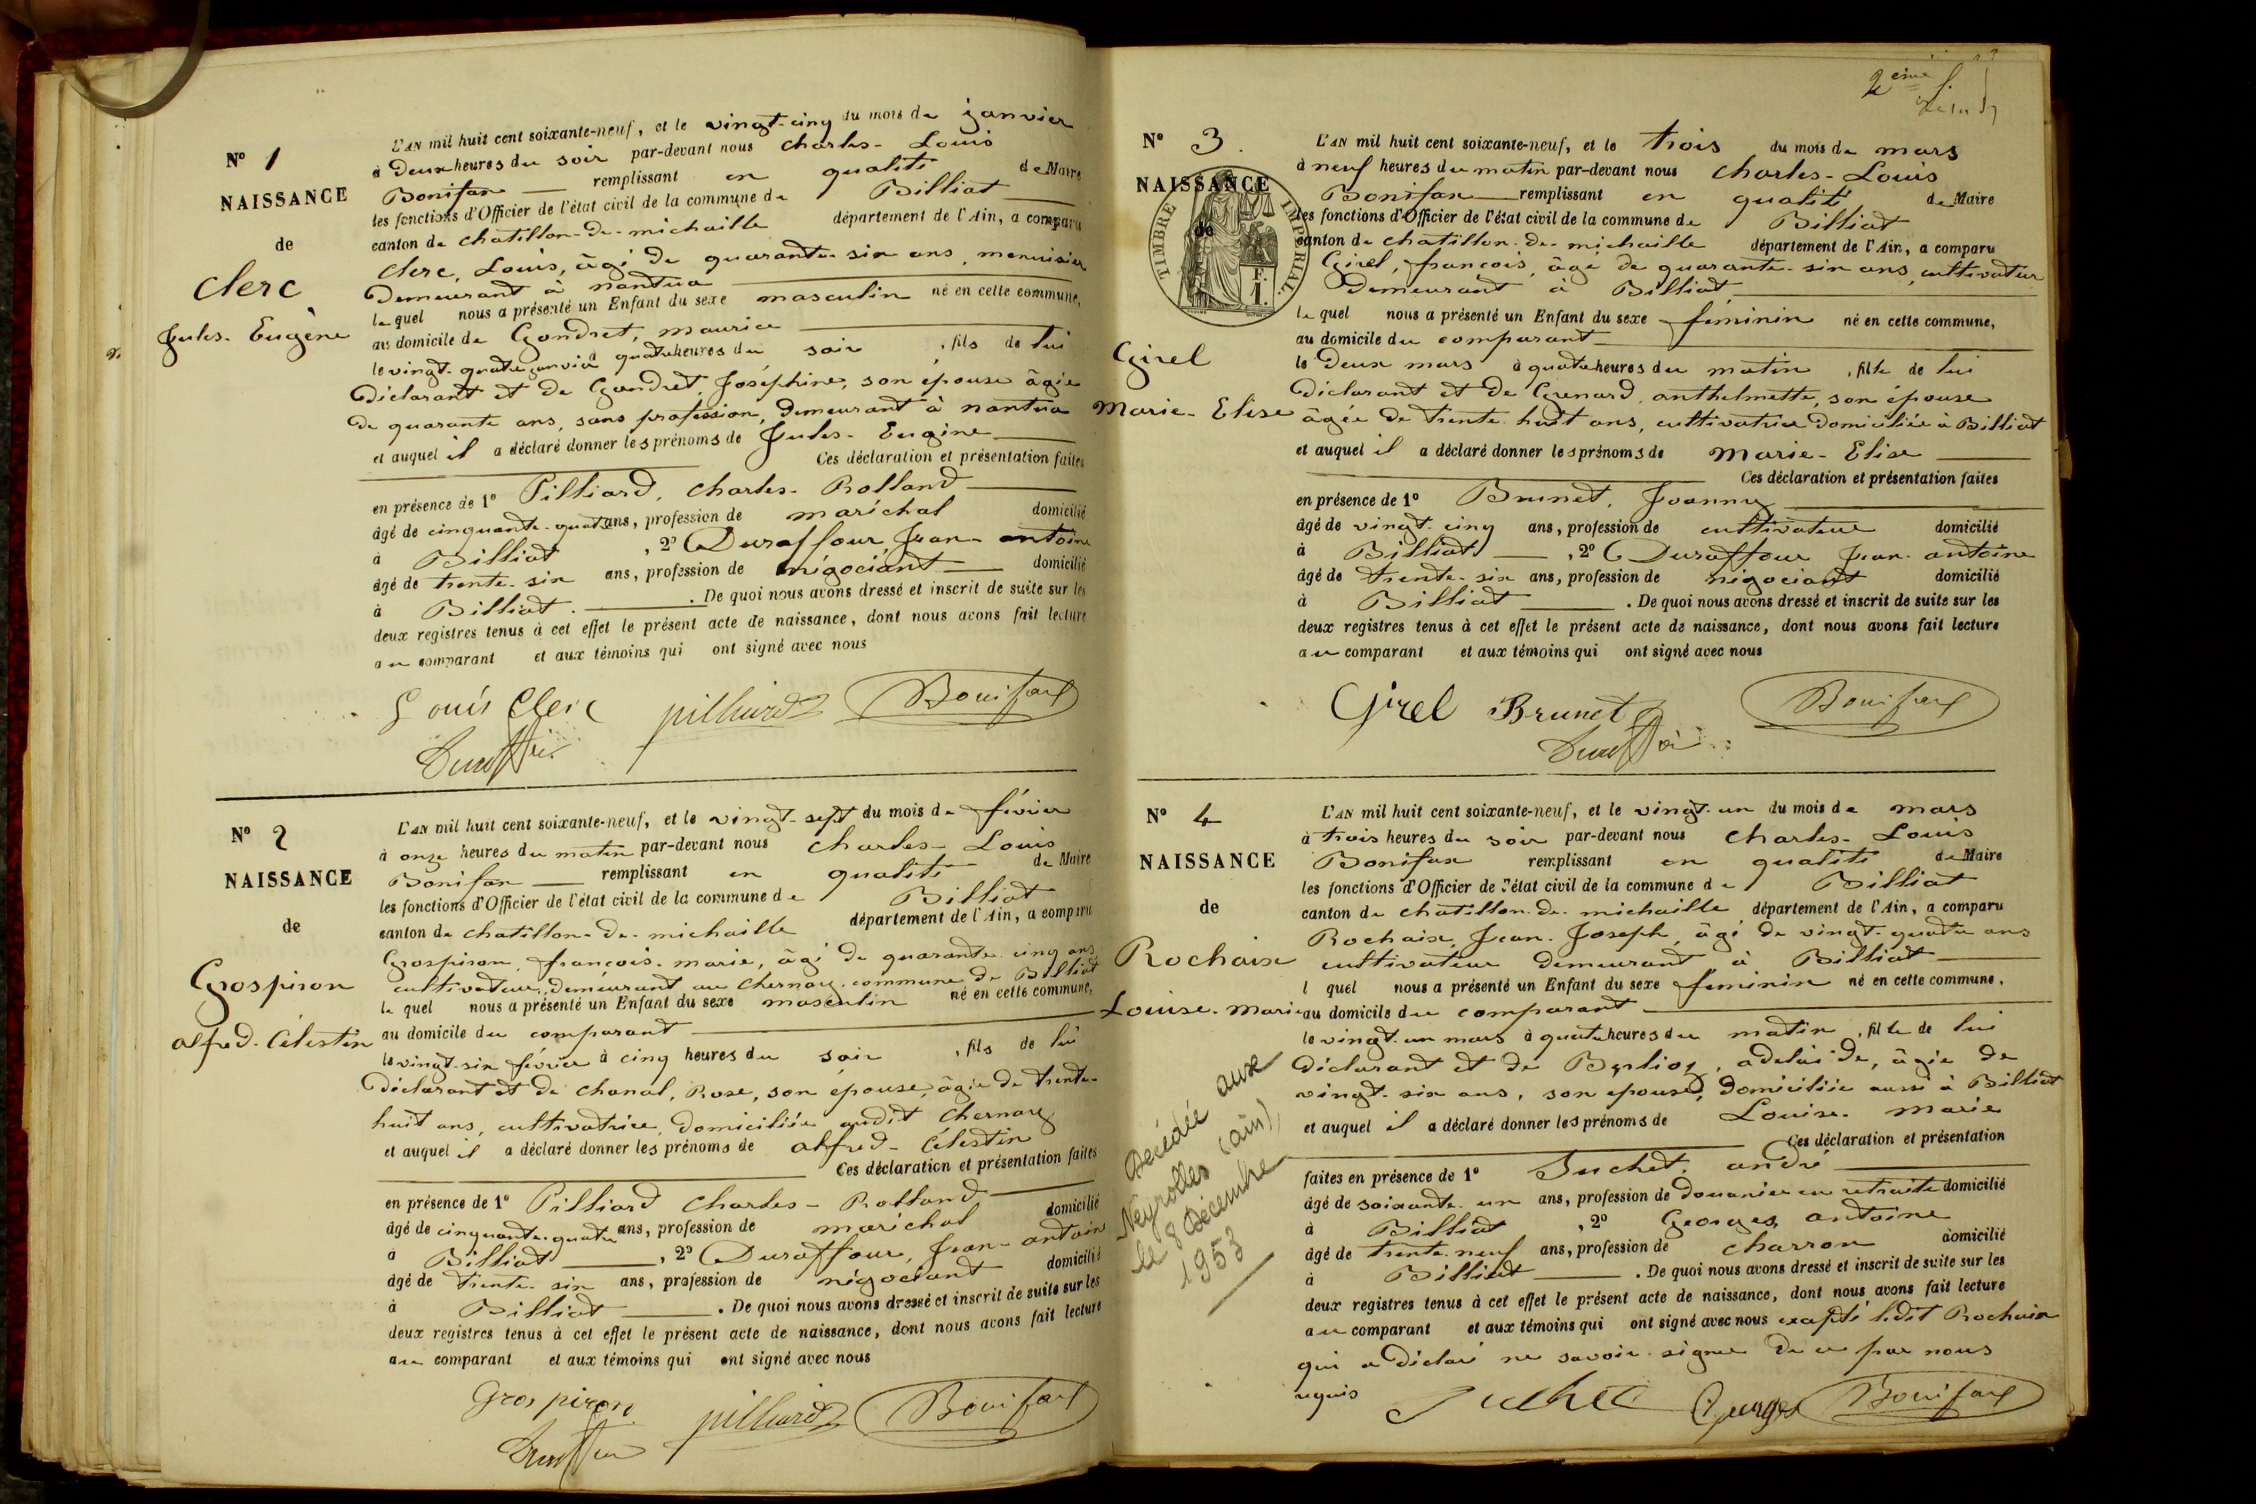 N° 1
NAISSANCE
de
Clerc
Jules-Eugène
L'AN mil huit cent soixante-neuf, et le vingt-cinq du mois de janvier
à Deux heures du soir par-devant nous Charles-Louis
Bonifax remplissant en qualité de Maire
les fonctions d'Officier de l'état civil de la commune de Billiat
canton de Chatillon-de-michaille département de l'Ain, a comparu
Clerc, Louis, âgé de quarante-six ans, menuisier
Demeurant à nantua
lequel nous a présenté un Enfant du sexe masculin né en cette commune,
au domicile de Gondret, maurice
le vingt-quatre janvier à quatre heures du soir, fils de lui
Déclarant et de Gondret, Joséphine, son épouse âgée
de quarante ans, sans profession, demeurant à nantua
et auquel il a déclaré donner les prénoms de Jules-Eugène
Ces déclaration et présentation faites
en présence de 1° Pilliard, Charles-Rolland
âgé de cinquante-quatre ans, profession de maréchal domicilié
à Billiat, 2° Duraffour Jean-antoine
âgé de trente-six ans, profession de négociant domicilié
à Billiat. De quoi nous avons dressé et inscrit de suite sur les
deux registres tenus à cet effet le présent acte de naissance, dont nous avons fait lecture
au comparant et aux témoins qui ont signé avec nous
Louis Clerc pilliard Bonifax
N° 2
NAISSANCE
de
Grospiron
alfred-Célestin
L'AN mil huit cent soixante-neuf, et le vingt-sept du mois de février
à onze heures du matin par-devant nous Charles-Louis
Bonifax remplissant en qualité de Maire
les fonctions d'Officier de l'état civil de la commune de Billiat
canton de Chatillon-de-michaille département de l'Ain, a comparu
Grospiron, françois-marie, âgé de quarante cinq ans
cultivateur, demeurant au Chernay, commune de Billiat
lequel nous a présenté un Enfant du sexe masculin né en cette commune,
au domicile du comparant
le vingt-six février à cinq heures du soir, fils de lui
Déclarant et de Chanal, Rose, son épouse, âgée de trente-
huit ans, cultivatrice, domiciliée audit Chernay
et auquel il a déclaré donner les prénoms de alfred-Célestin
Ces déclaration et présentation faites
en présence de 1° Pilliard Charles-Rolland
âgé de cinquante-quatre ans, profession de maréchal domicilié
à Billiat, 2° Duraffour, Jean-antoine
âgé de trente-six ans, profession de négociant domicilié
à Billiat. De quoi nous avons dressé et inscrit de suite sur les
deux registres tenus à cet effet le présent acte de naissance, dont nous avons fait lecture
au comparant et aux témoins qui ont signé avec nous
Grospiron pilliard Bonifax
2eme
N° 3.
NAISSANCE
de
TIMBRE IMPERIAL
Girel
Marie-Elise
L'AN mil huit cent soixante-neuf, et le trois du mois de mars
à neuf heures du matin par-devant nous Charles-Louis
Bonifax remplissant en qualité de Maire
les fonctions d'Officier de l'état civil de la commune de Billiat
canton de Chatillon-de-michaille département de l'Ain, a comparu
Girel, françois, âgé de quarante-six ans, cultivateur
Demeurant à Billiat
lequel nous a présenté un Enfant du sexe féminin né en cette commune,
au domicile du comparant
le Deux mars à quatre heures du matin, fille de lui
Déclarant et de Grenard, anthelmette, son épouse
âgée de trente-huit ans, cultivatrice domiciliée à Billiat
et auquel il a déclaré donner les prénoms de Marie-Elise
Ces déclaration et présentation faites
en présence de 1° Brunet, Joanny
âgé de vingt-cinq ans, profession de cultivateur domicilié
à Billiat, 2° Duraffour Jean-antoine
âgé de trente-six ans, profession de négociant domicilié
à Billiat. De quoi nous avons dressé et inscrit de suite sur les
deux registres tenus à cet effet le présent acte de naissance, dont nous avons fait lecture
au comparant et aux témoins qui ont signé avec nous
Girel Brunet Bonifax
N° 4
NAISSANCE
de
Rochaix
Louise-Marie
L'AN mil huit cent soixante-neuf, et le vingt-un du mois de mars
à trois heures du soir par-devant nous Charles-Louis
Bonifax remplissant en qualité de Maire
les fonctions d'Officier de l'état civil de la commune de Billiat
canton de Chatillon-de-michaille département de l'Ain, a comparu
Rochaix, Jean-Joseph, âgé de vingt-quatre ans
cultivateur demeurant à Billiat
lequel nous a présenté un Enfant du sexe féminin né en cette commune,
au domicile du comparant
le vingt-un mars à quatre heures du matin, fille de lui
Déclarant et de Berlioz, adelaïde, âgée de
vingt-six ans, son épouse, domiciliée aussi à Billiat
et auquel il a déclaré donner les prénoms de Louise-Marie
Ces déclaration et présentation
faites en présence de 1° Juchet, andré
âgé de soixante-un ans, profession de douanier en retraite domicilié
à Billiat, 2° Georges, antoine
âgé de trente-neuf ans, profession de charron domicilié
à Billiat. De quoi nous avons dressé et inscrit de suite sur les
deux registres tenus à cet effet le présent acte de naissance, dont nous avons fait lecture
au comparant et aux témoins qui ont signé avec nous excepté ledit Rochaix
qui a déclaré ne savoir signer de ce par nous
requis Juchet Georges Bonifax
Décédée aux
Neyrolles (ain)
le 8 Décembre
1953